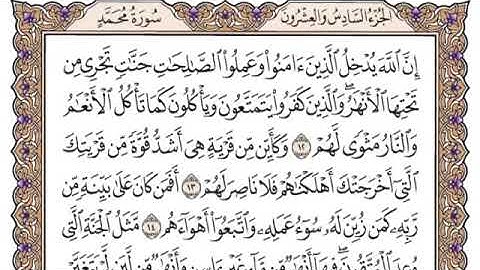 الجزء السادس والعشرون سورة محمد
إِنَّ ٱللَّهَ يُدْخِلُ ٱلَّذِينَ ءَامَنُوا۟ وَعَمِلُوا۟ ٱلصَّـٰلِحَـٰتِ جَنَّـٰتٍ تَجْرِى مِن
تَحْتِهَا ٱلْأَنْهَـٰرُ ۖ وَٱلَّذِينَ كَفَرُوا۟ يَتَمَتَّعُونَ وَيَأْكُلُونَ كَمَا تَأْكُلُ ٱلْأَنْعَـٰمُ
وَٱلنَّارُ مَثْوًى لَّهُمْ ١٢ وَكَأَيِّن مِّن قَرْيَةٍ هِىَ أَشَدُّ قُوَّةً مِّن قَرْيَتِكَ
ٱلَّتِىٓ أَخْرَجَتْكَ أَهْلَكْنَـٰهُمْ فَلَا نَاصِرَ لَهُمْ ١٣ أَفَمَن كَانَ عَلَىٰ بَيِّنَةٍ مِّن
رَّبِّهِۦ كَمَن زُيِّنَ لَهُۥ سُوٓءُ عَمَلِهِۦ وَٱتَّبَعُوٓا۟ أَهْوَآءَهُم ١٤ مَّثَلُ ٱلْجَنَّةِ ٱلَّتِى
وُعِدَ ٱلْمُتَّقُونَ ۖ فِيهَآ أَنْهَـٰرٌ مِّن مَّآءٍ غَيْرِ ءَاسِنٍ وَأَنْهَـٰرٌ مِّن لَّبَنٍ لَّمْ يَتَغَيَّرْ